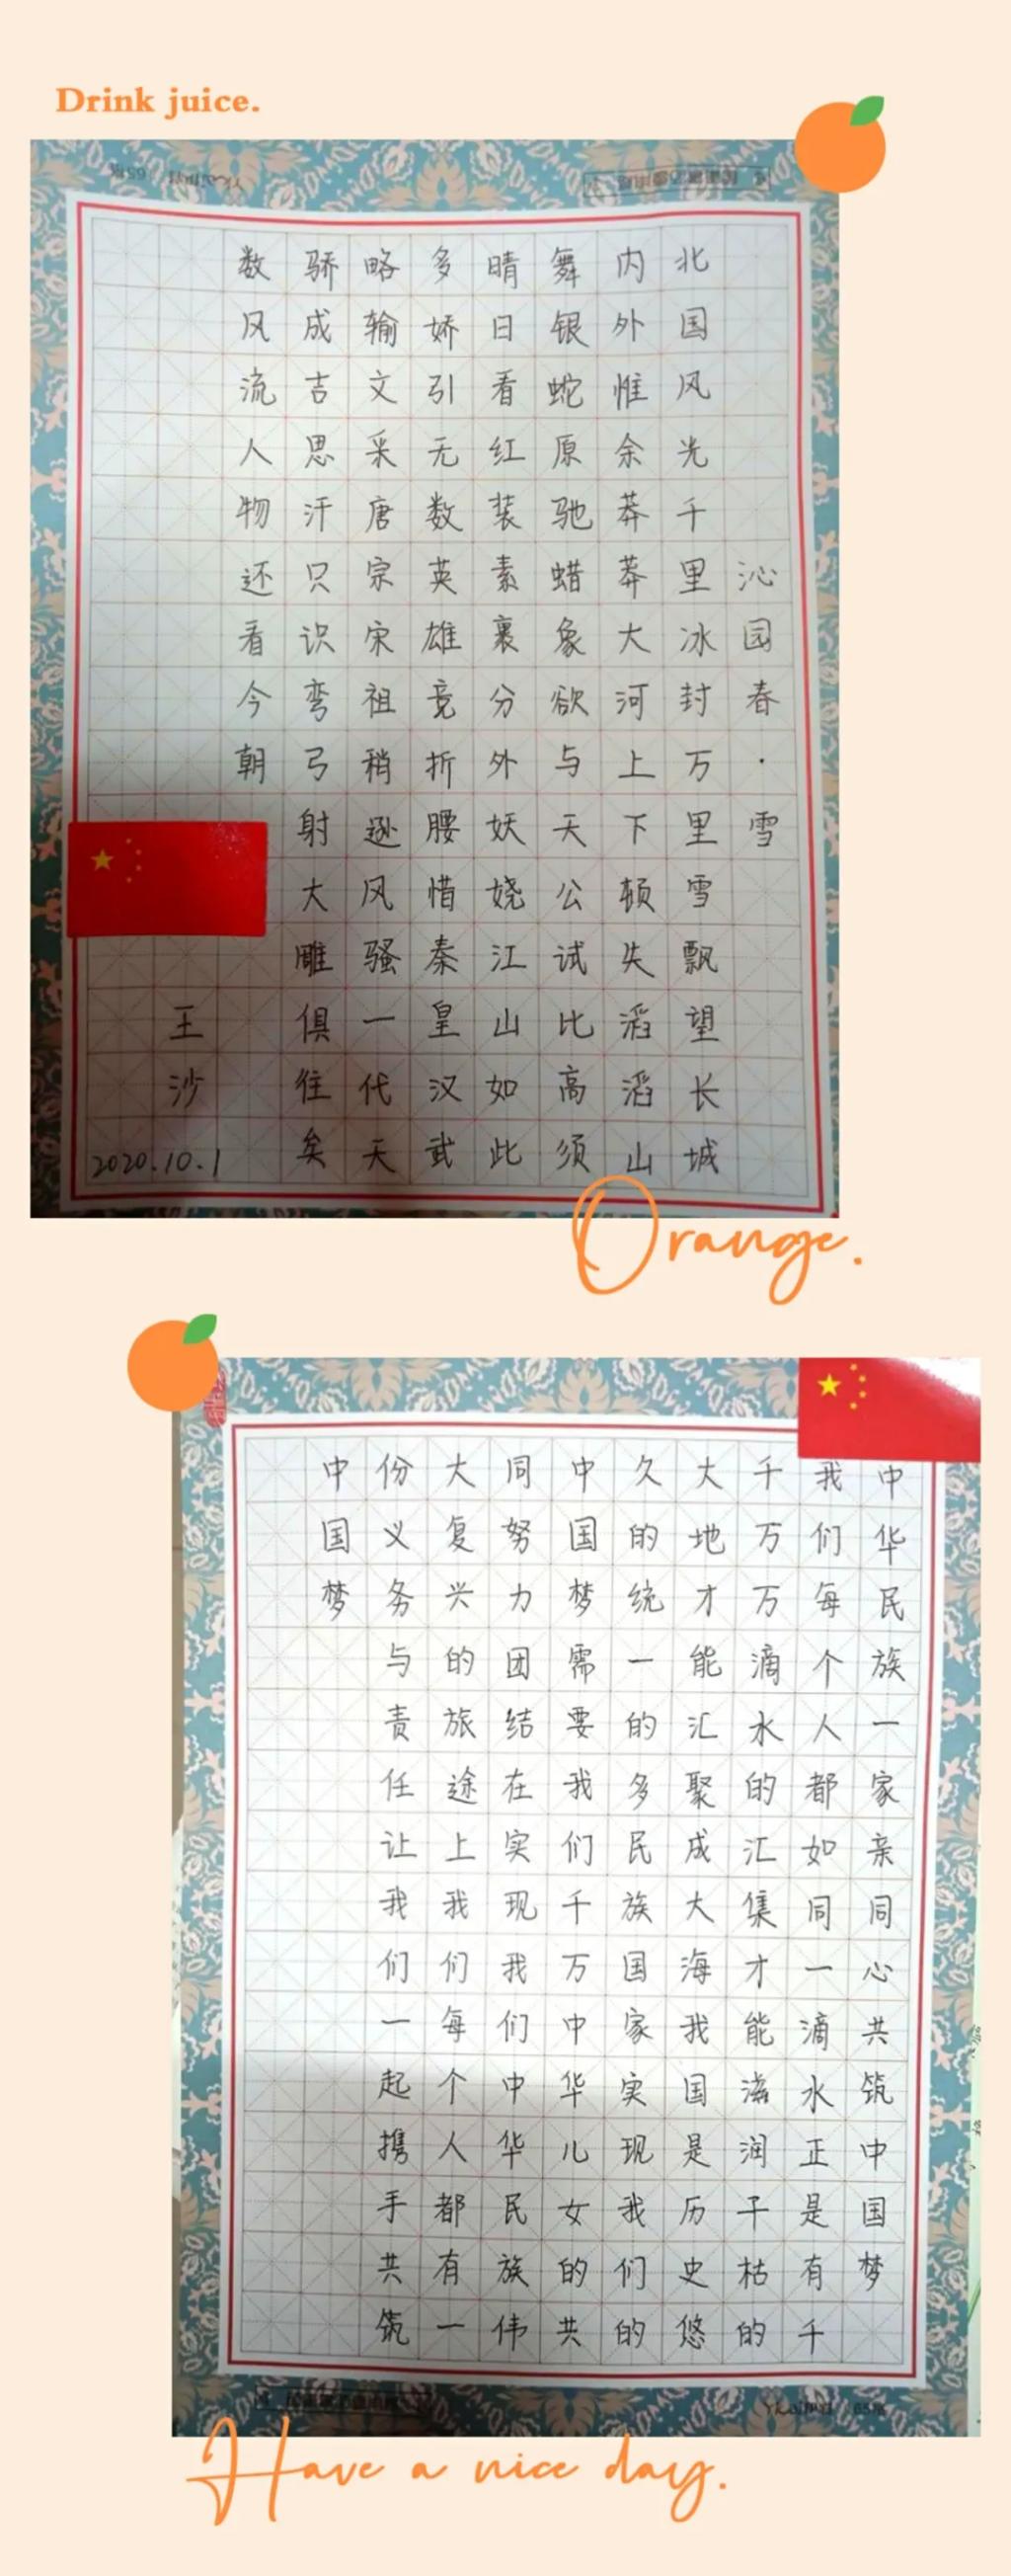 Drink juice.
沁园春·雪
北国风光千里冰封万里雪飘望长城
内外惟余莽莽大河上下顿失滔滔山
舞银蛇原驰蜡象欲与天公试比高须
晴日看红装素裹分外妖娆江山如此
多娇引无数英雄竞折腰惜秦皇汉武
略输文采唐宗宋祖稍逊风骚一代天
骄成吉思汗只识弯弓射大雕俱往矣
数风流人物还看今朝
王沙
2020.10.1
Orange.
中华民族一家亲同心共筑中国梦
我们每个人都如同一滴水正是有千
千万万滴水的汇集才能滋润干枯的
大地才能汇聚成大海我国是历史悠
久的统一的多民族国家实现我们的
中国梦需要我们千万中华儿女的共
同努力团结在实现我们中华民族伟
大复兴的旅途上我们每个人都有一
份义务与责任让我们一起携手共筑
中国梦
Have a nice day.